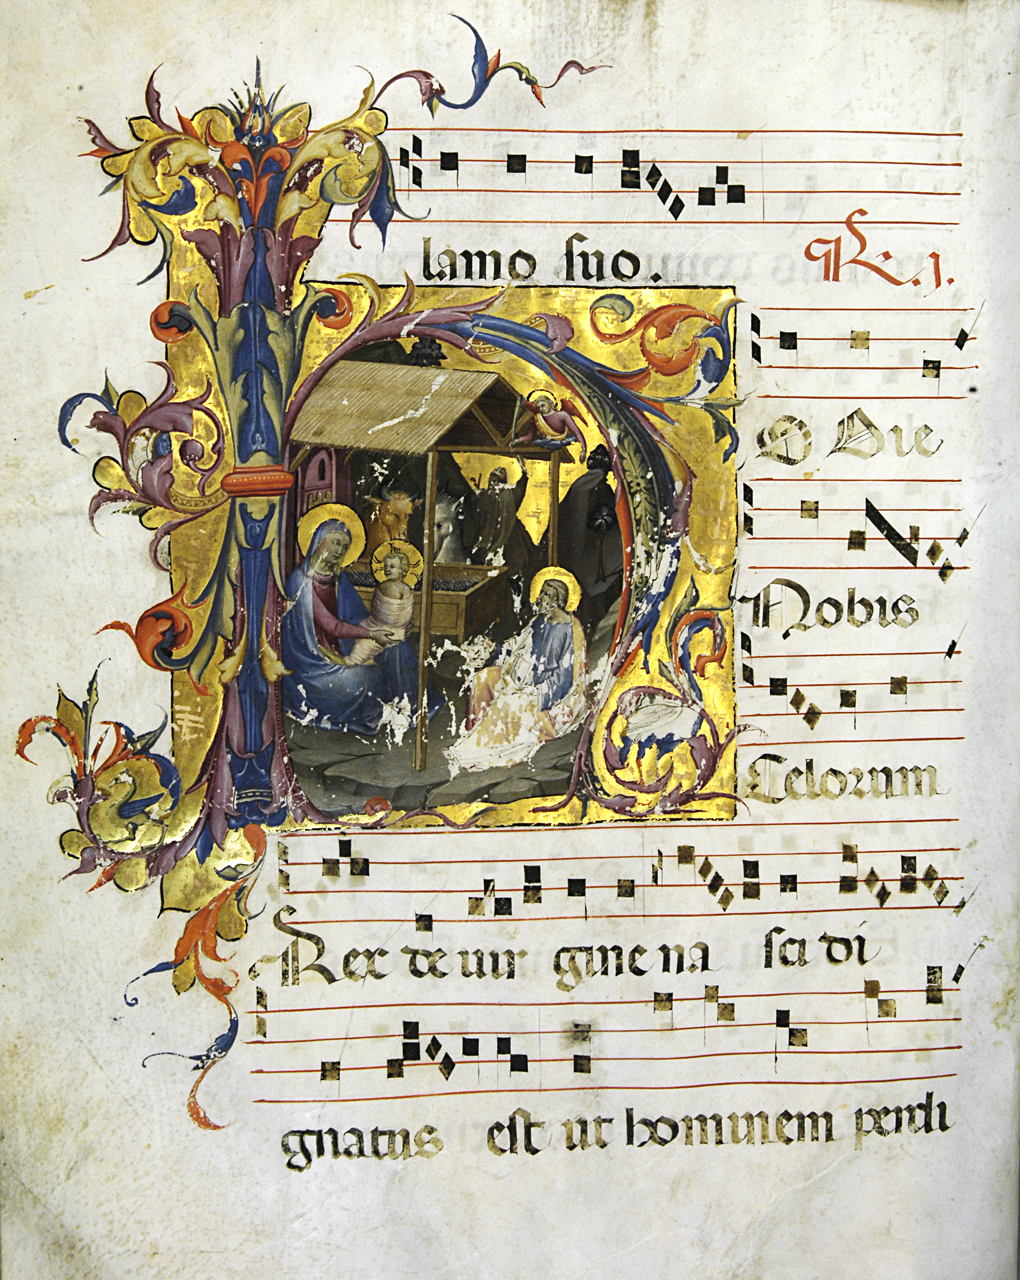 lamo suo. R. j.
Hodie
Nobis
Celorum
Rex de uir gine na sci di
gnatus est ut hominem perdi